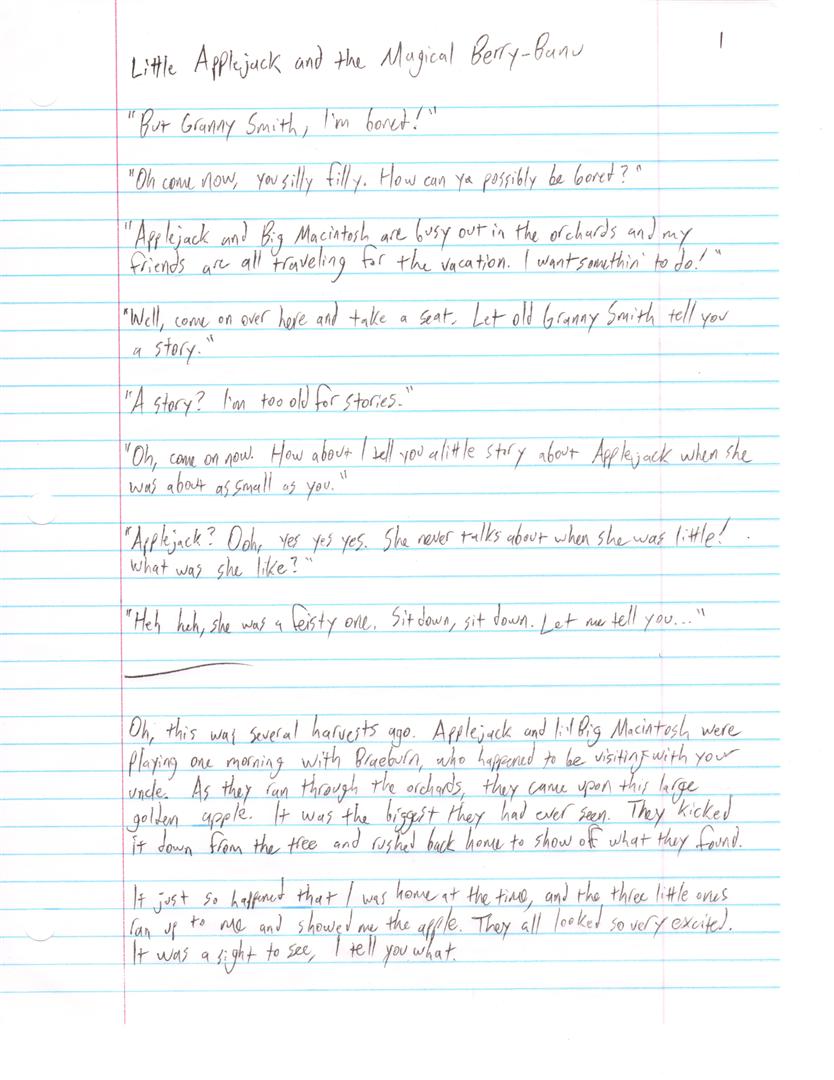 1
Little Applejack and the Magical Berry-Banu
"But Granny Smith, I'm bored!"
"Oh come now, you silly filly. How can ya possibly be bored?"
"Applejack and Big Macintosh are busy out in the orchards and my
friends are all traveling for the vacation. I want somethin' to do!"
"Well, come on over here and take a seat. Let old Granny Smith tell you
a story."
"A story? I'm too old for stories."
"Oh, come on now. How about I tell you a little story about Applejack when she
was about as small as you."
"Applejack? Ooh, yes yes yes. She never talks about when she was little!
What was she like?"
"Heh heh, she was a feisty one. Sit down, sit down. Let me tell you..."
Oh, this was several harvests ago. Applejack and li'l Big Macintosh were
playing one morning with Braeburn, who happened to be visiting with your
uncle. As they ran through the orchards, they came upon this large
golden apple. It was the biggest they had ever seen. They kicked
it down from the tree and rushed back home to show off what they found.
It just so happened that I was home at the time, and the three little ones
ran up to me and showed me the apple. They all looked so very excited.
It was a sight to see, I tell you what.